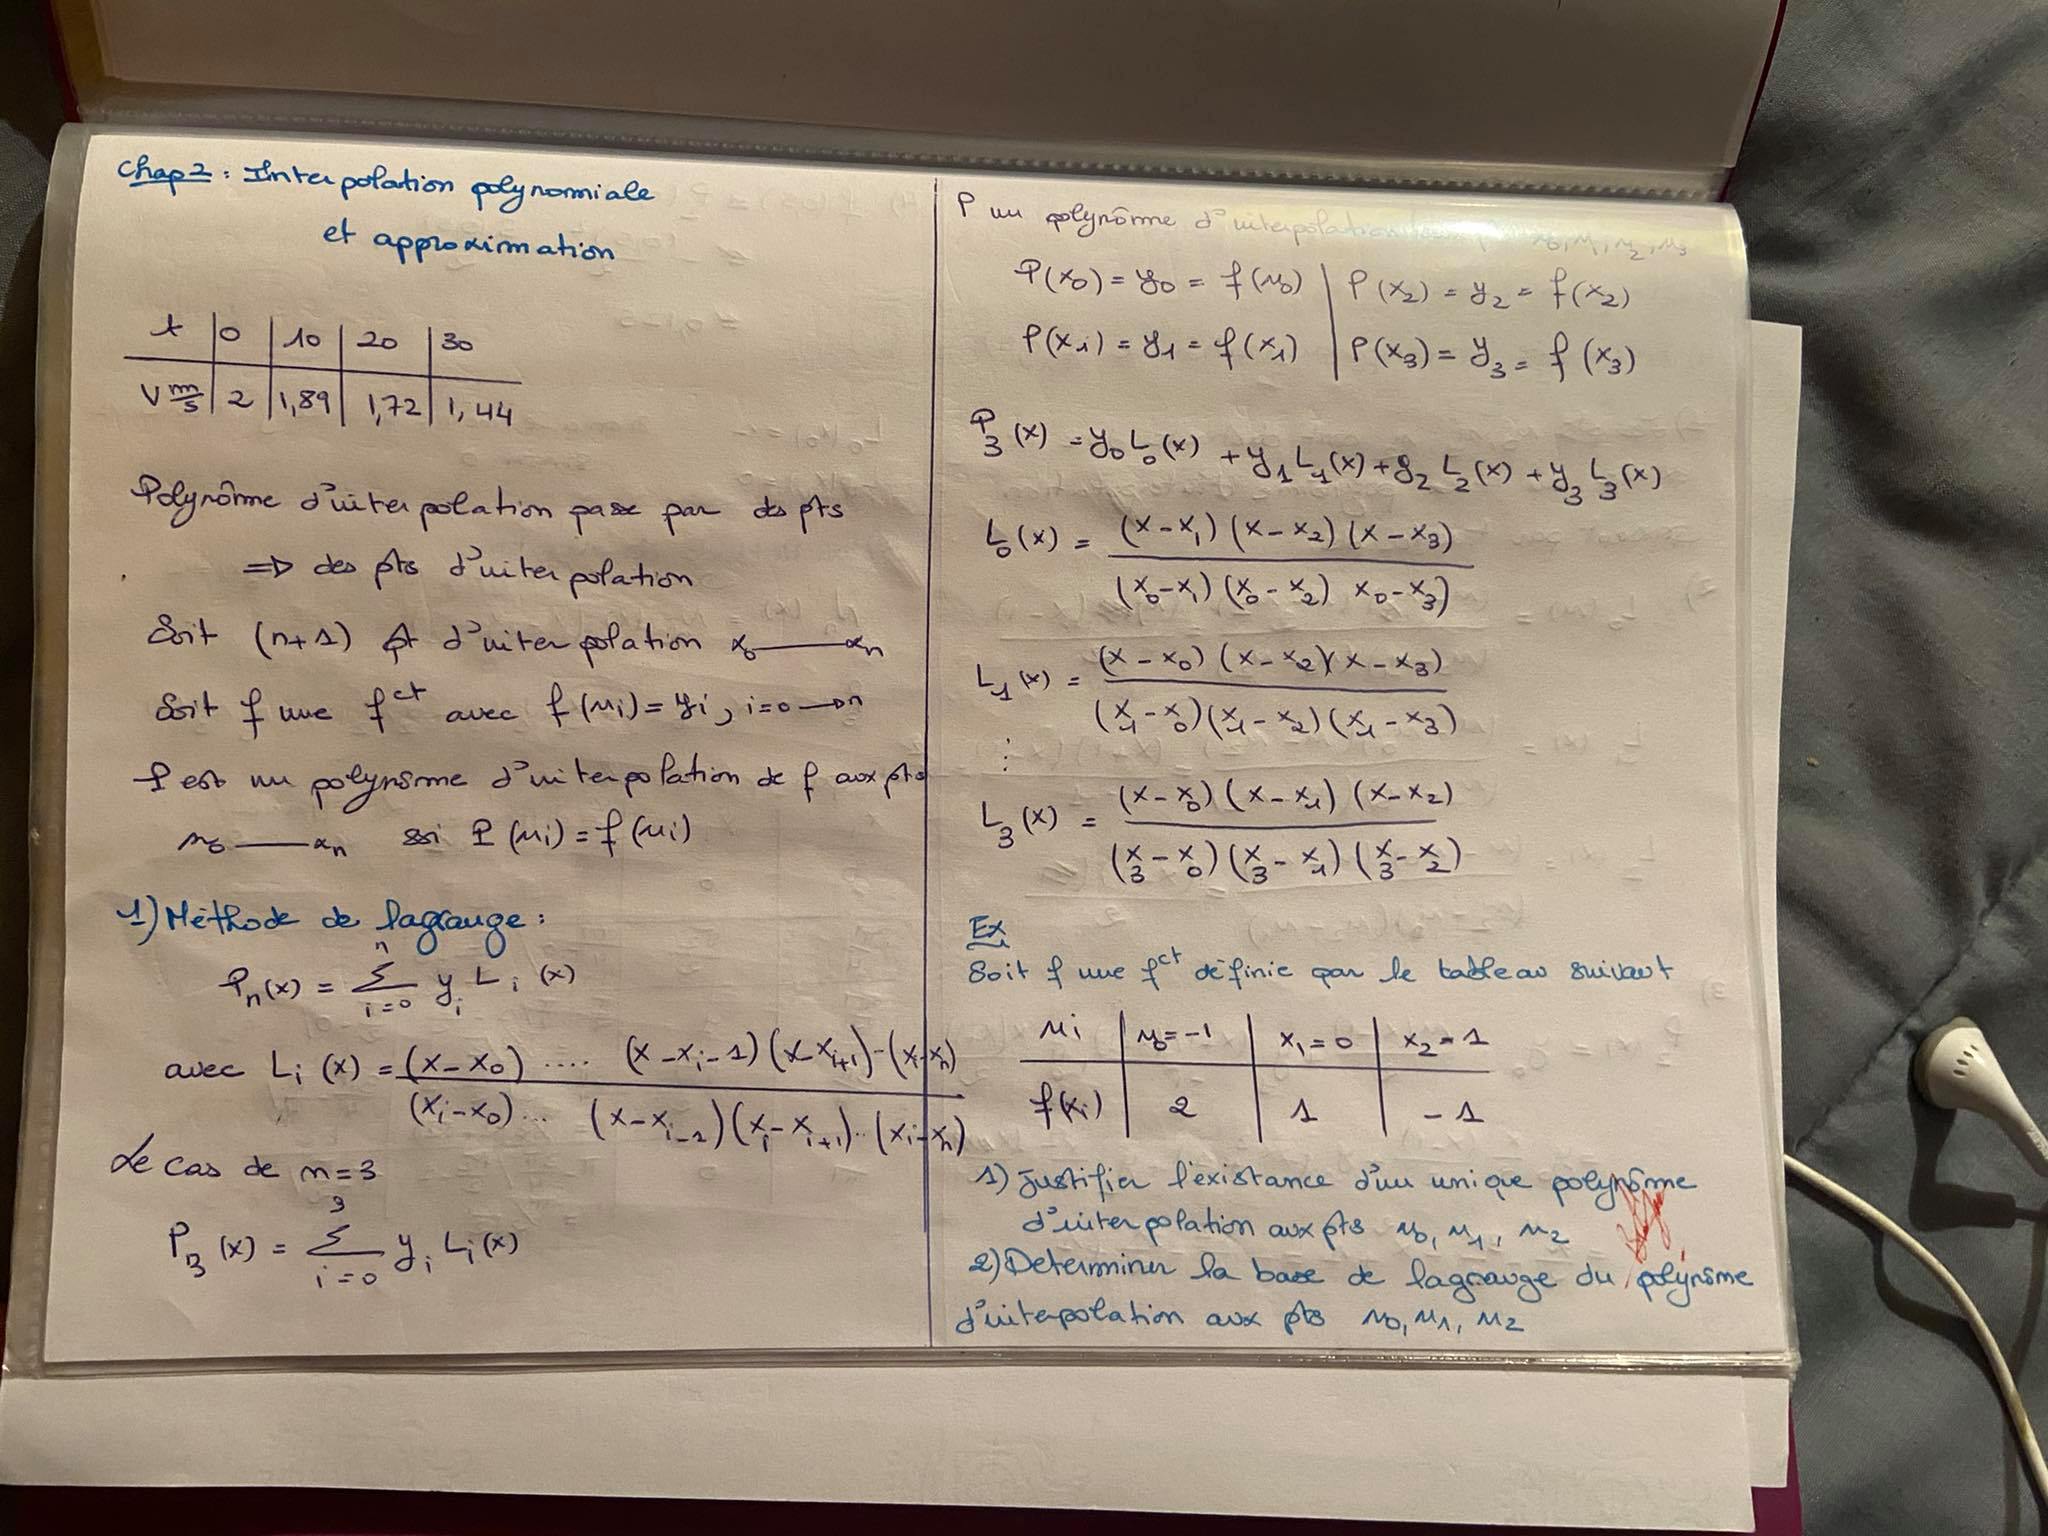 Chap2 : Interpolation polynomiale
et approximation
t | 0 | 10 | 20 | 30
V m/s | 2 | 1,89 | 1,72 | 1,44
Polynôme d'interpolation passe par des pts
=> des pts d'interpolation
Soit (n+1) pt d'interpolation x0 —— xn
Soit f une fct avec f(xi) = yi, i=0 → n
P est un polynôme d'interpolation de f aux pts
x0 —— xn ssi P(xi) = f(xi)
1) Méthode de lagrange :
Pn(x) = Σ_{i=0}^{n} yi Li(x)
avec Li(x) = (x-x0) .... (x-xi-1)(x-xi+1)-(xi-xn)
(xi-x0)... (x-xi-1)(xi-xi+1)..(xi-xn)
Le cas de n=3
P3(x) = Σ_{i=0}^{3} yi Li(x)
P un polynôme d'interpolation x0, x1, x2, x3
P(x0) = y0 = f(x0) | P(x2) = y2 = f(x2)
P(x1) = y1 = f(x1) | P(x3) = y3 = f(x3)
P3(x) = y0 L0(x) + y1 L1(x) + y2 L2(x) + y3 L3(x)
L0(x) = (x-x1)(x-x2)(x-x3)
(x0-x1)(x0-x2) x0-x3)
L1(x) = (x-x0)(x-x2)(x-x3)
(x1-x0)(x1-x2)(x1-x3)
⋮
L3(x) = (x-x0)(x-x1)(x-x2)
(x3-x0)(x3-x1)(x3-x2)
Ex
Soit f une fct définie par le tableau suivant
xi | x0=-1 | x1=0 | x2=1
f(xi) | 2 | 1 | -1
1) Justifier l'existance d'un unique polynôme
d'interpolation aux pts x0, x1, x2
2) Determiner la base de lagrange du polynôme
d'interpolation aux pts x0, x1, x2